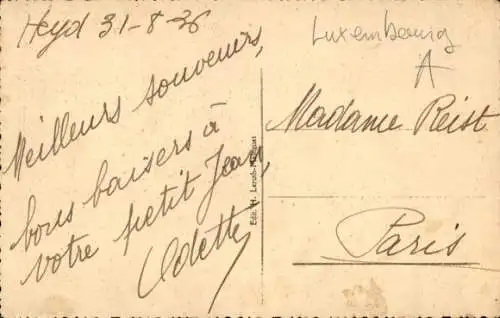 Heyd 31-8-36
Meilleurs souvenirs,
bons baisers à
votre petit Jean,
Odette
Luxembourg
A
Madame Reist
Paris
Edit. H.